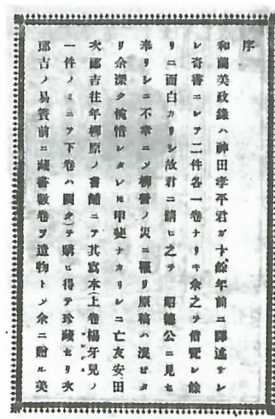 序
和蘭美政錄ハ神田孝平君ガ十餘年前ニ譯述サレ
シ奇書ニシテ二件各一卷ナリキ余之ヲ借覽シ餘
リニ面白カリシ故君ニ請ヒ之ヲ 昭德公ニ見セ
奉リシニ不幸ニメ柳營ノ災ニ罹リ原稿ハ滅ビタ
リ余深ク惋惜シタレ𪜈甲斐ナカリシニ亡友安田
次郞吉往年柳原ノ書鋪ニテ其寫本上卷楊牙兒ノ
一件ノミニテ下卷ハ闕タヲ購ヒ得テ珍藏セリ次
郞吉ノ易簀前ニ藏書數卷ヲ遺物トメ余ニ贈ル美